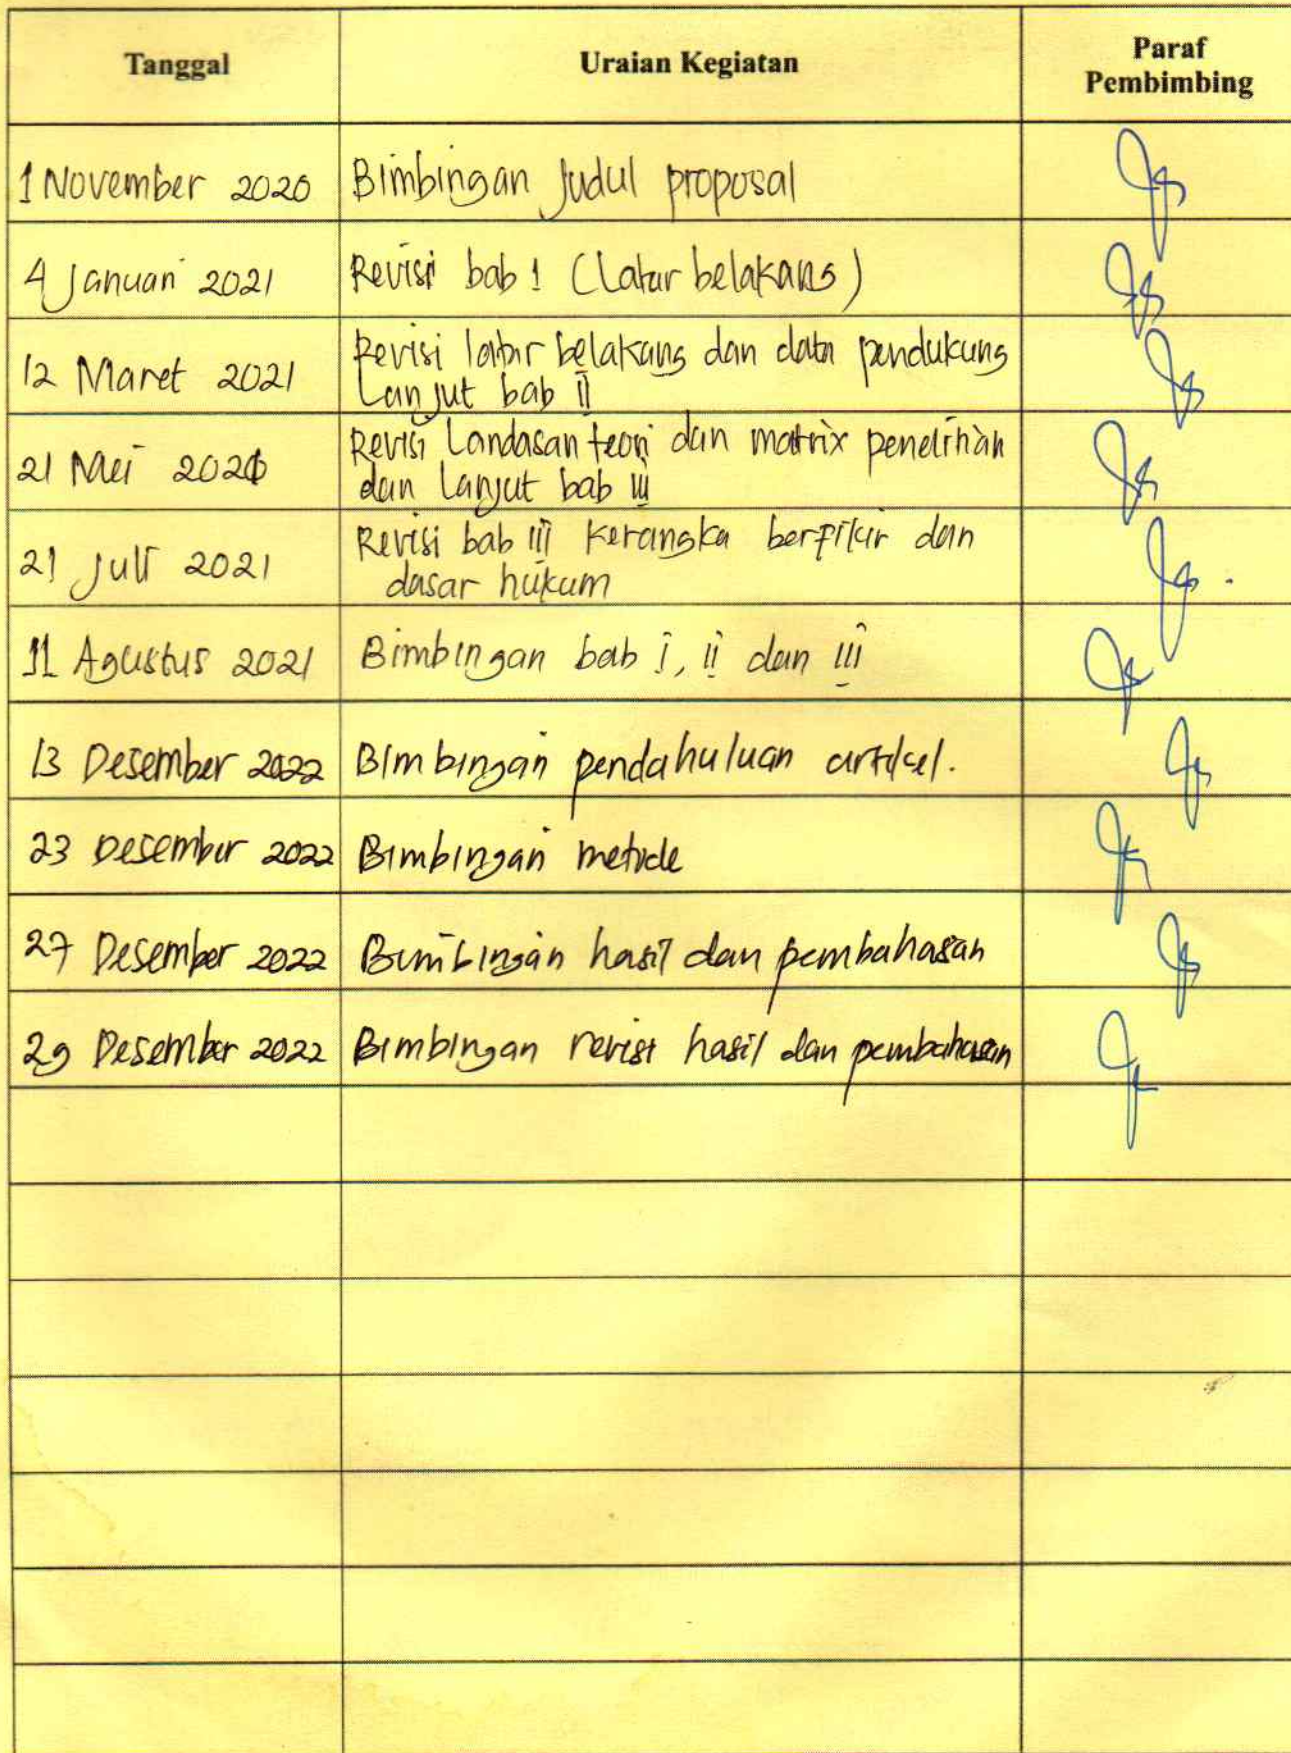 Tanggal Uraian Kegiatan Paraf
Pembimbing
1 November 2020 Bimbingan Judul proposal
4 Januari 2021 Revisi bab 1 (Latar belakang)
12 Maret 2021 Revisi latar belakang dan data pendukung
Lanjut bab ii
21 Mei 2021 Revisi Landasan teori dan matrix penelitian
dan Lanjut bab iii
21 Juli 2021 Revisi bab iii kerangka berfikir dan
dasar hukum
11 Agustus 2021 Bimbingan bab i, ii dan iii
13 Desember 2022 Bimbingan pendahuluan artikel.
23 Desember 2022 Bimbingan metode
27 Desember 2022 Bimbingan hasil dan pembahasan
29 Desember 2022 Bimbingan revisi hasil dan pembahasan